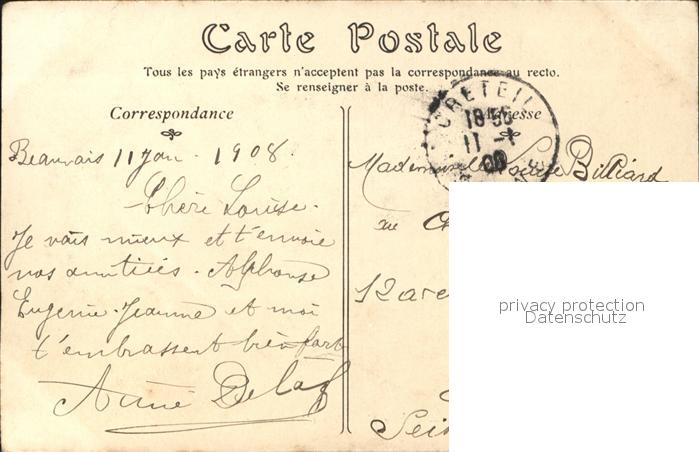 Carte Postale
Tous les pays étrangers n'acceptent pas la correspondance au recto.
Se renseigner à la poste.
Correspondance
Beauvais 11 Jan. 1908.
Chère Louise.
Je vais mieux et t'envoie
nos amitiés. Alphonse
Eugenie. Jeanne et moi
t'embrassent bien fort
CRETEIL
18 35
11 -1
Adresse
Mademoiselle Louise Billiard
au
12
privacy protection
Datenschutz
Sei